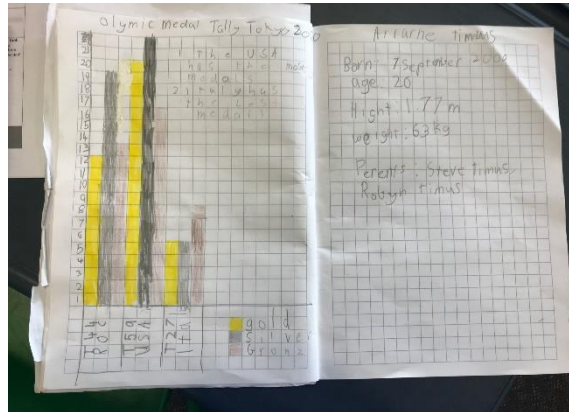 Olymic Medal Tally Tokyo 2000
1 The USA
has the most
medals
2 italy has
the
medals
21
20
19
18
17
16
15
14
13
12
11
10
9
8
7
6
5
4
3
2
1
T44
ROC
T59
USA
T27
Ita
gold
Silver
Bronz
Ariarne timus
Born: 7 September 2000
age: 20
Hight: 1.77 m
weight: 63 kg
Perents: Steve timus
Robyn timus